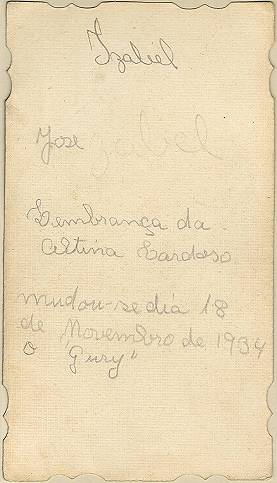 Izabel
José
Izabel
Lembrança da
Altina Cardoso
mudou-se dia 18
de Novembro de 1934
o "Gury"